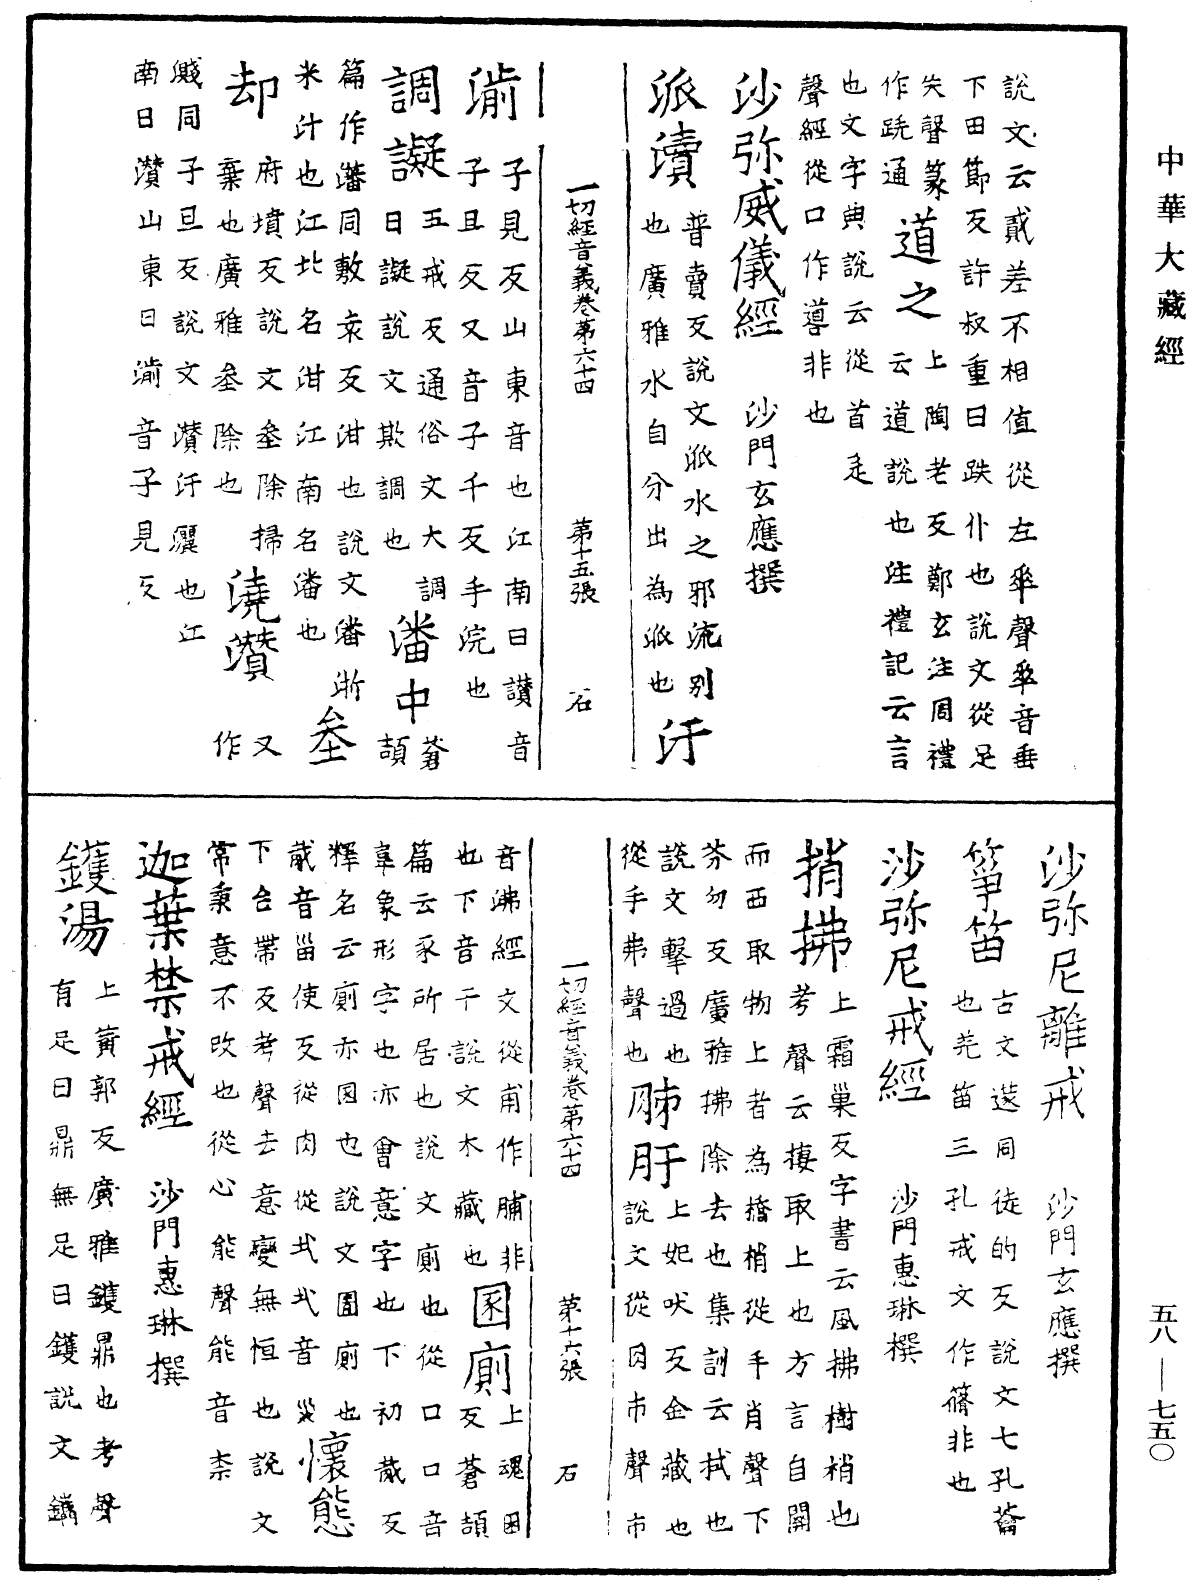 中華大藏經
說文云貳差不相值從左𠂹聲𠂹音垂
下田節反許叔重曰跌仆也說文從足
失聲篆
作跣通
道之
上陶老反鄭玄注周禮
云道說也注禮記云言
也文字典說云從首辵
聲經從口作噵非也
沙弥威儀經 沙門玄應撰
派瀆
普賣反說文派水之邪流別
也廣雅水自分出為派也
汙
一切經音義卷第六十四 第十五張 石
湔
子見反山東音也江南曰讚音
子旦反又音子千反手浣也
調譺
五戒反通俗文大調
曰譺說文欺調也
潘中
蒼頡
篇作𤄜同敷袁反泔也說文潘淅
米汁也江北名泔江南名潘也
坌
却
府墳反說文坌除掃
棄也廣雅坌除也
澆灒
又作
濺同子旦反說文灒汙灑也江
南曰灒山東曰湔音子見反
沙弥尼離戒 沙門玄應撰
箏笛
古文篴同徒的反說文七孔籥
也羌笛三孔戒文作篠非也
沙弥尼戒經 沙門惠琳撰
捎拂
上霜巢反字書云風拂樹梢也
考聲云捿取上也方言自關
而西取物上者為撟梢從手肖聲下
芬勿反廣雅拂除去也集訓云拭也
說文擊過也
從手弗聲也
胏肝
上妃吠反金藏也
說文從肉巿聲巿
一切經音義卷第六十四 第十六張 石
音沸經文從甫作脯非
也下音干說文木藏也
圂廁
上魂困
反蒼頡
篇云豕所居也說文廁也從口口音
韋象形字也亦會意字也下初廁反
釋名云廁亦圂也說文圊廁也
葘音甾使反從肉從𢦏𢦏音災
懷態
下台帶反考聲去意變無恒也說文
常秉意不改也從心能聲能音柰
迦葉禁戒經 沙門惠琳撰
鑊湯
上黃郭反廣雅鑊鼎也考聲
有足曰鼎無足曰鑊說文鐫
五八—七五〇